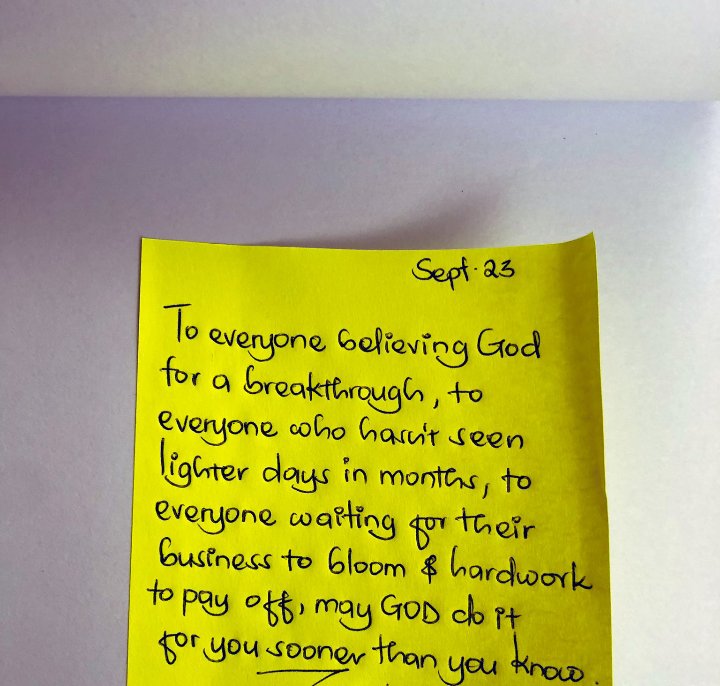 Sept. 23
To everyone believing God
for a breakthrough, to
everyone who hasn't seen
lighter days in months, to
everyone waiting for their
business to bloom & hardwork
to pay off, may GOD do it
for you sooner than you know.